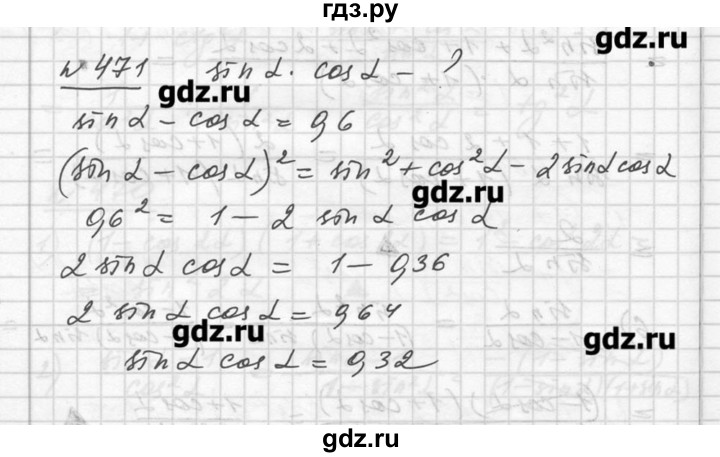 гдз.ру
№ 471 sin α · cos α - ?
gdz.ru
sin α - cos α = 0,6
(sin α - cos α)² = sin² + cos² α - 2 sin α cos α
gdz.ru
0,6² = 1 - 2 sin α cos α
2 sin α cos α = 1 - 0,36
2 sin α cos α = 0,64
gdz.ru gdz.ru
sin α cos α = 0,32
gdz.ru